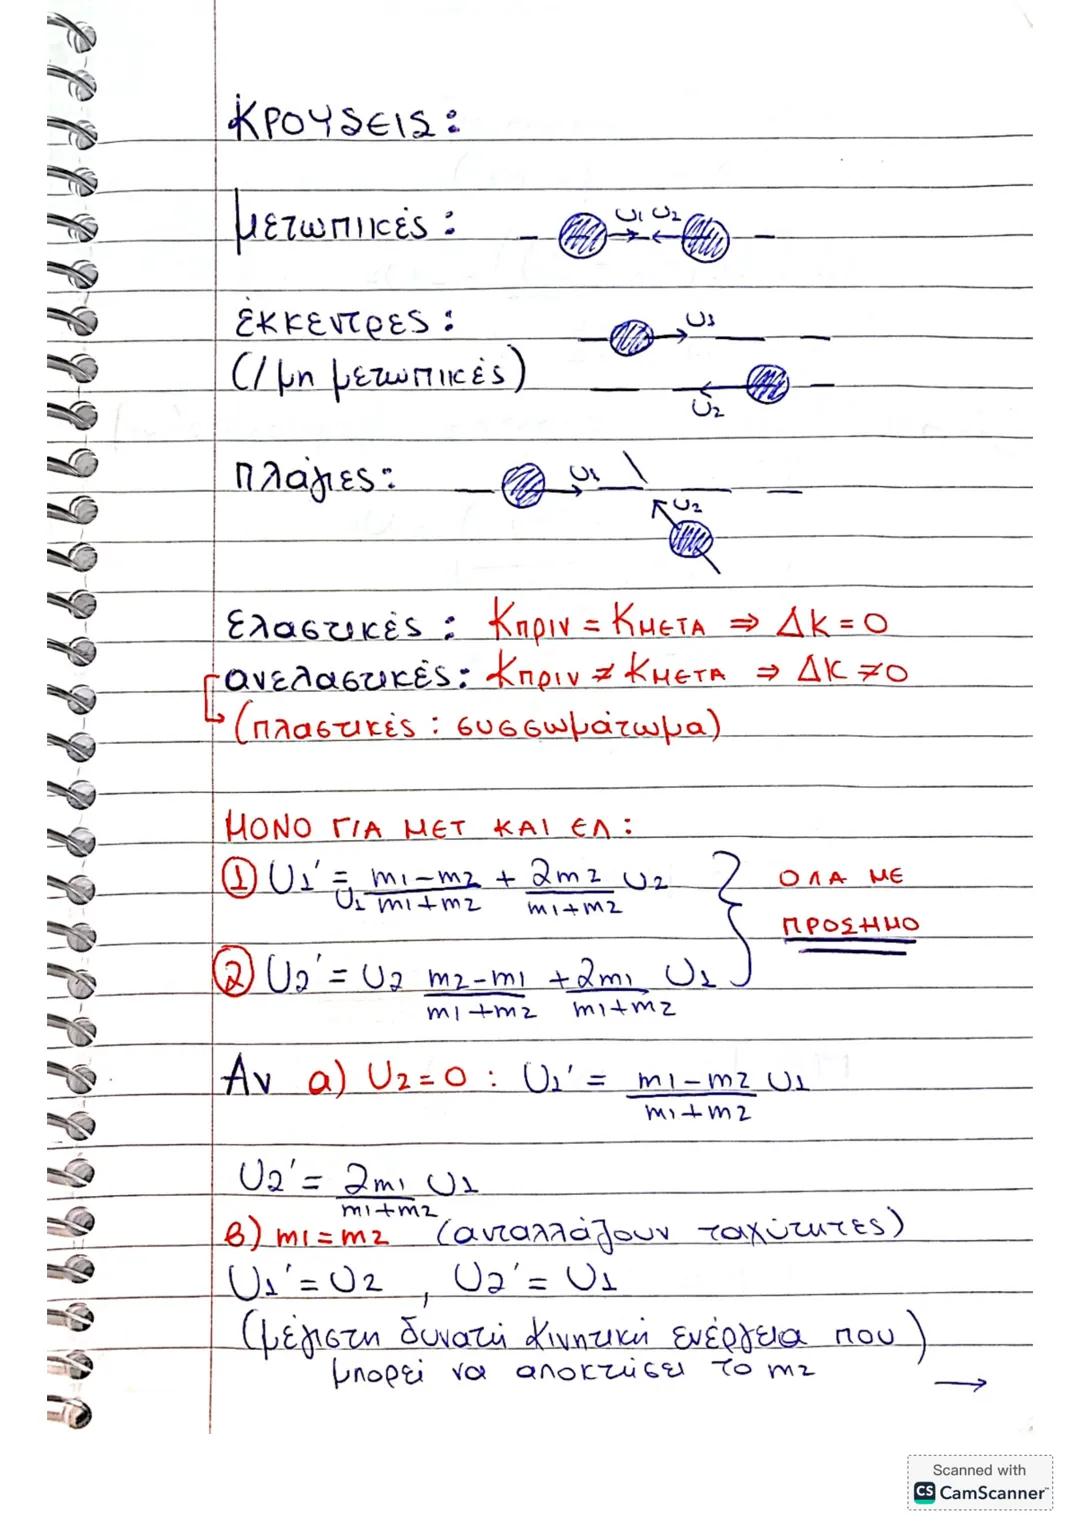 ΚΡΟΥΣΕΙΣ:
μετωπικές: υ1 υ2
έκκεντρες: υ1
(/μη μετωπικές) υ2
πλάγιες: υ1 υ2
ελαστικές: Κπριν = ΚΜΕΤΑ ⇒ ΔΚ = 0
ανελαστικές: Κπριν ≠ ΚΜΕΤΑ ⇒ ΔΚ ≠ 0
(πλαστικές: συσσωμάτωμα)
ΜΟΝΟ ΓΙΑ ΜΕΤ ΚΑΙ ΕΛ:
① υ1' = υ1 (m1-m2)/(m1+m2) + 2m2/(m1+m2) υ2 } ΟΛΑ ΜΕ ΠΡΟΣΗΜΟ
② υ2' = υ2 (m2-m1)/(m1+m2) + 2m1/(m1+m2) υ1
Αν α) υ2=0: υ1' = (m1-m2)/(m1+m2) υ1
υ2' = 2m1/(m1+m2) υ1
β) m1=m2 (ανταλλάζουν ταχύτητες)
υ1' = υ2 , υ2' = υ1
(μέγιστη δυνατή κινητική ενέργεια που
μπορεί να αποκτήσει το m2) →
Scanned with
CS CamScanner